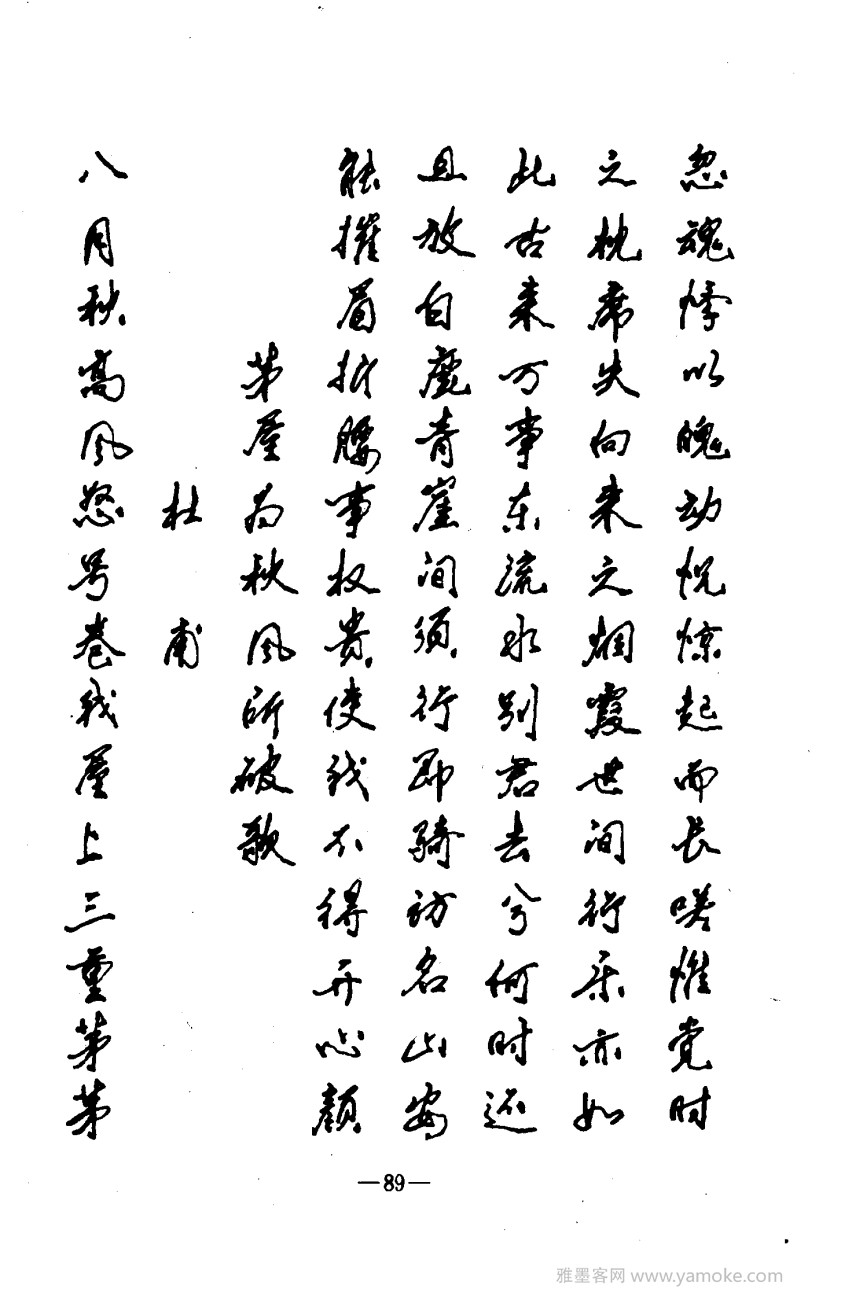 忽魂悸以魄动怳惊起而长嗟惟觉时
之枕席失向来之烟霞世间行乐亦如
此古来万事东流水别君去兮何时还
且放白鹿青崖间须行即骑访名山安
能摧眉折腰事权贵使我不得开心颜
茅屋为秋风所破歌
杜甫
八月秋高风怒号卷我屋上三重茅茅
—89—
雅墨客网 www.yamoke.com